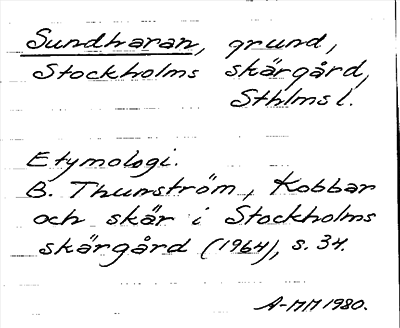 Sundharan, grund,
Stockholms skärgård,
Sthlms l.
Etymologi.
B. Thunström, Kobbar
och skär i Stockholms
skärgård (1964), s. 34.
A-MM 1980.